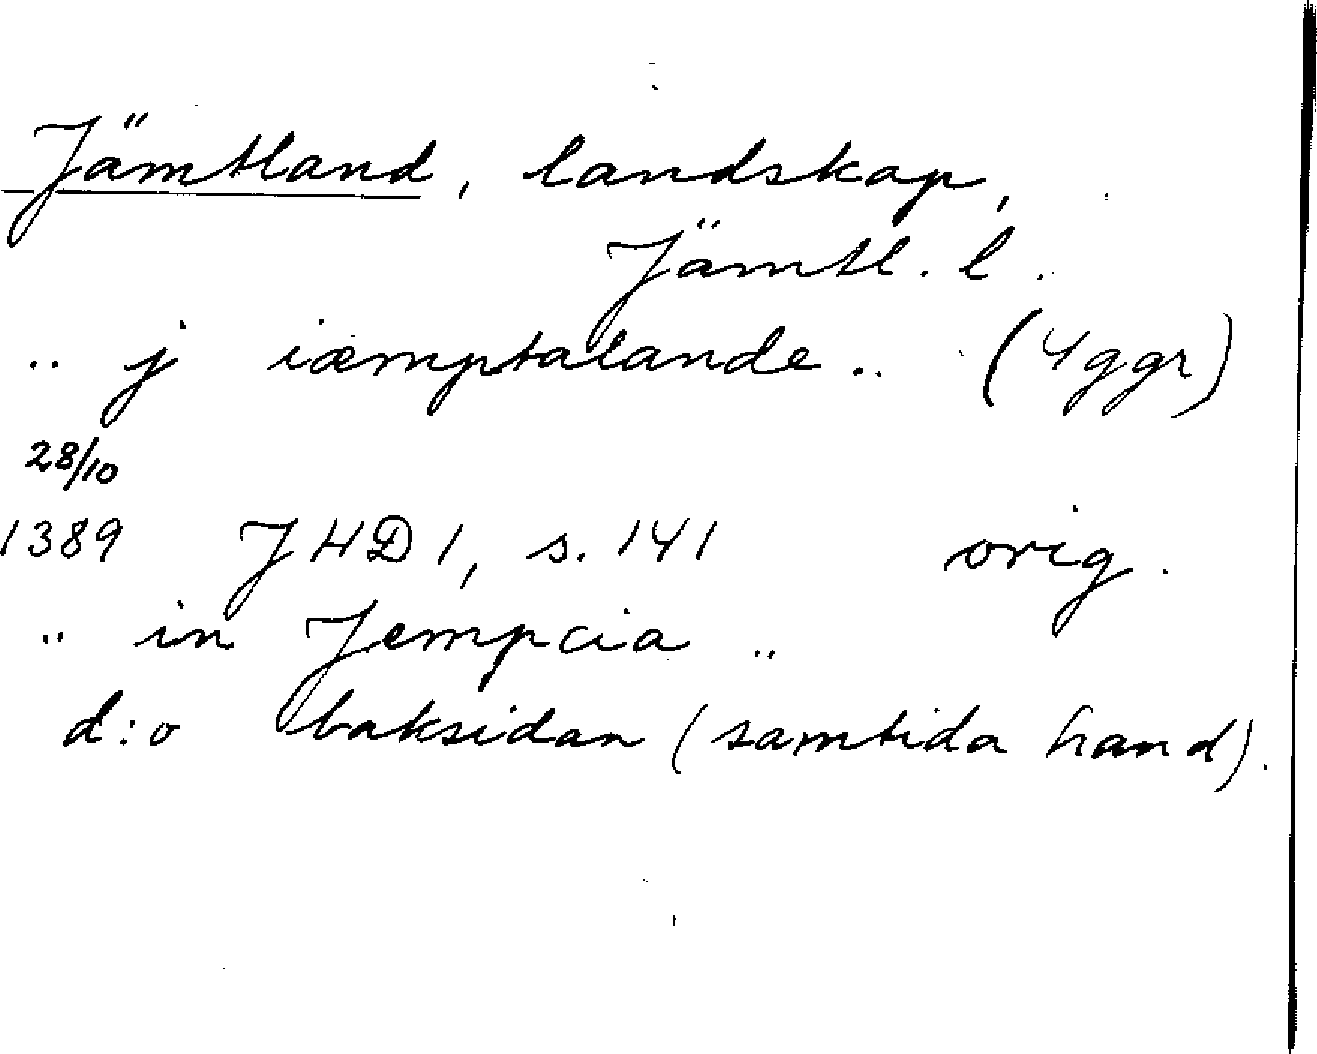 Jämtland, landskap,
Jämtl. l.
.. j iæmptalande .. (4 ggr)
28/10
1389 JHD 1, s. 141 orig.
.. in Jempcia ..
d:o baksidan (samtida hand).